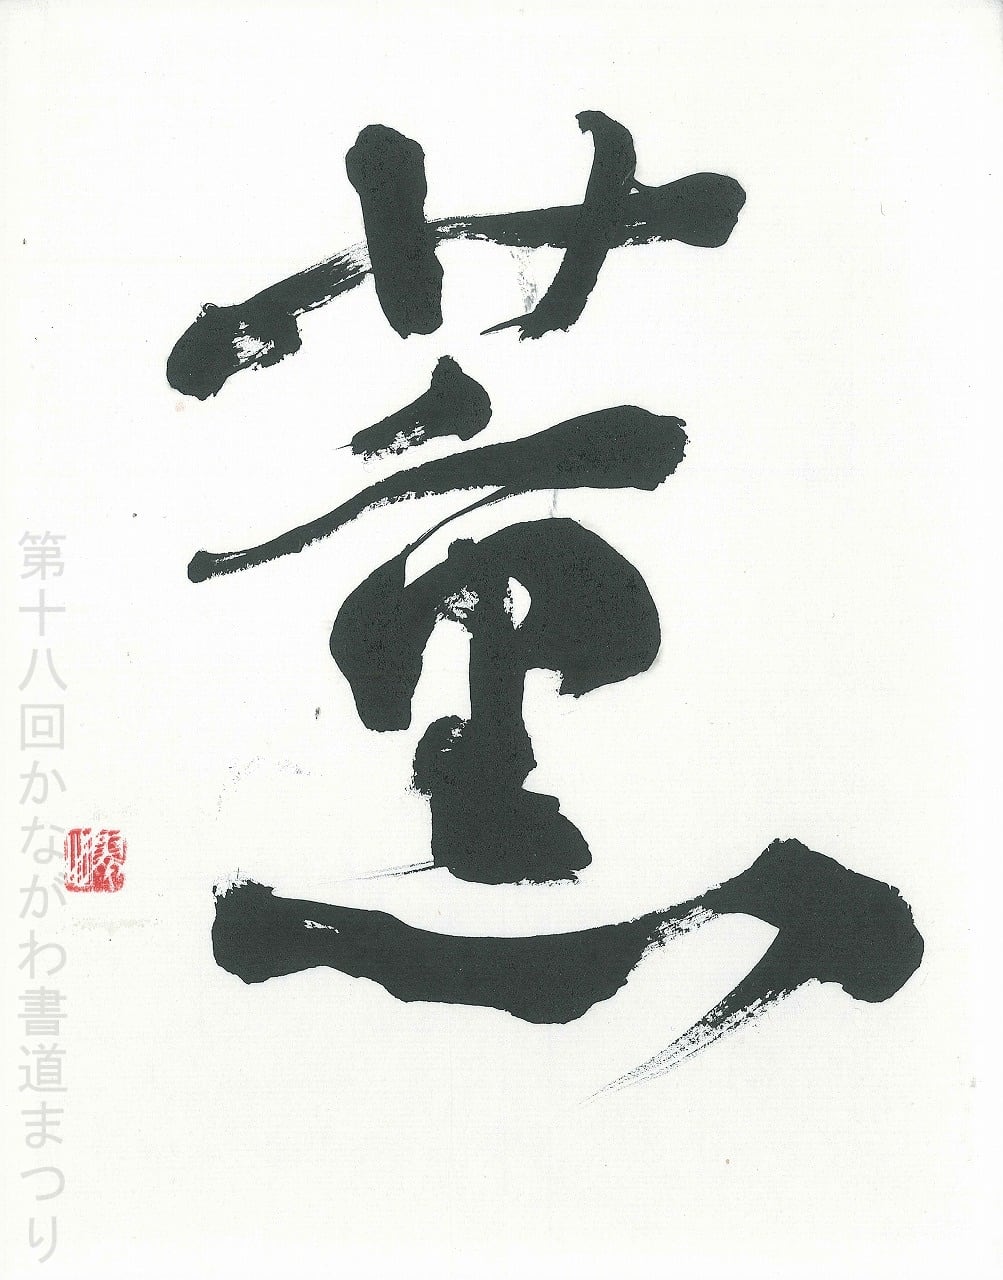 薫
第十八回かながわ書道まつり